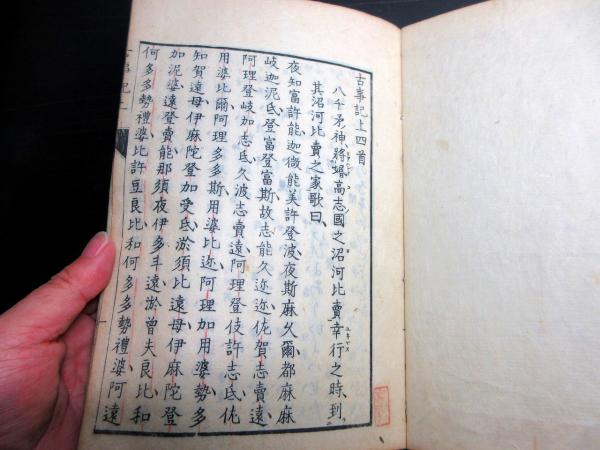 古事記上四首
八千矛神、將婚高志國之沼河比賣幸行之時、到
其沼河比賣之家歌曰、
夜知富許能迦微能美許登波、夜斯麻久爾都麻麻
岐迦泥氐、登富登富斯、故志能久迩迩、佐賀志賣遠、
阿理登岐加志氐、久波志賣遠、阿理登伎許志氐、佐
用婆比爾、阿理多多斯、用婆比迩、阿理加用婆勢、多
知賀遠母、伊麻陀登加受氐、淤須比遠母、伊麻陀登
加泥婆、遠登賣能、那須夜伊多斗遠、淤曾夫良比、和
何多多勢禮婆、比許豆良比、和何多多勢禮婆、阿遠